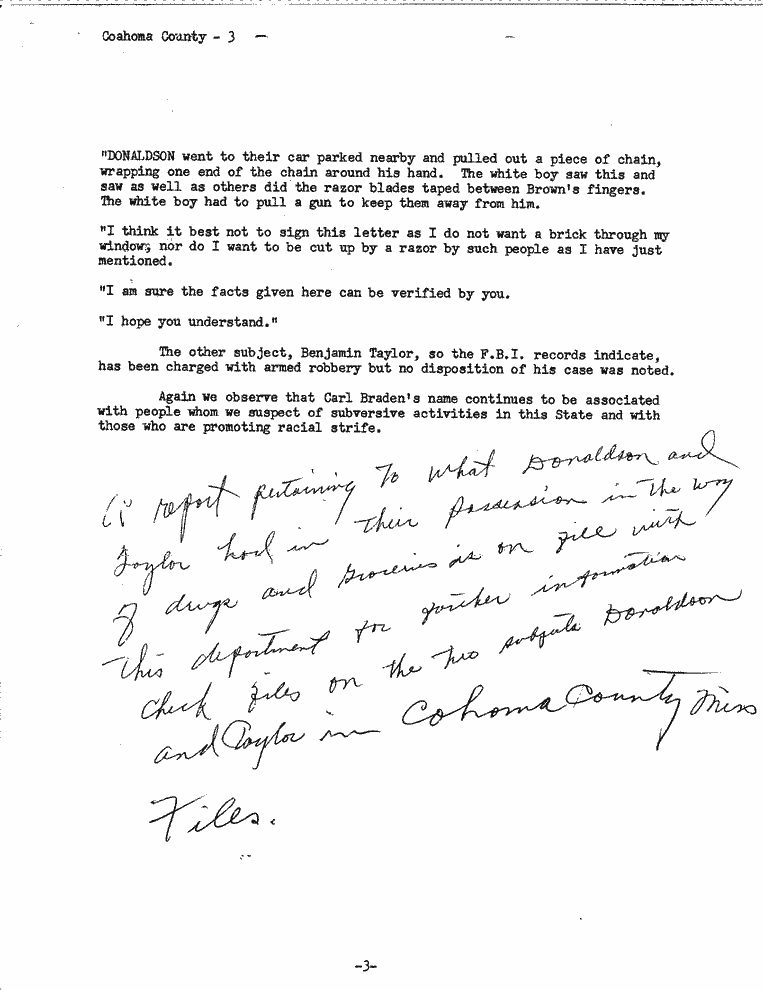 Coahoma County - 3 —
"DONALDSON went to their car parked nearby and pulled out a piece of chain,
wrapping one end of the chain around his hand. The white boy saw this and
saw as well as others did the razor blades taped between Brown's fingers.
The white boy had to pull a gun to keep them away from him.
"I think it best not to sign this letter as I do not want a brick through my
window; nor do I want to be cut up by a razor by such people as I have just
mentioned.
"I am sure the facts given here can be verified by you.
"I hope you understand."
The other subject, Benjamin Taylor, so the F.B.I. records indicate,
has been charged with armed robbery but no disposition of his case was noted.
Again we observe that Carl Braden's name continues to be associated
with people whom we suspect of subversive activities in this State and with
those who are promoting racial strife.
A report pertaining To what Donaldson and
Taylor had in their possession in The way
of drugs and groceries is on file with
This department for further information
check files on the two subjects Donaldson
and Taylor in Cohoma County Miss
Files.
-3-